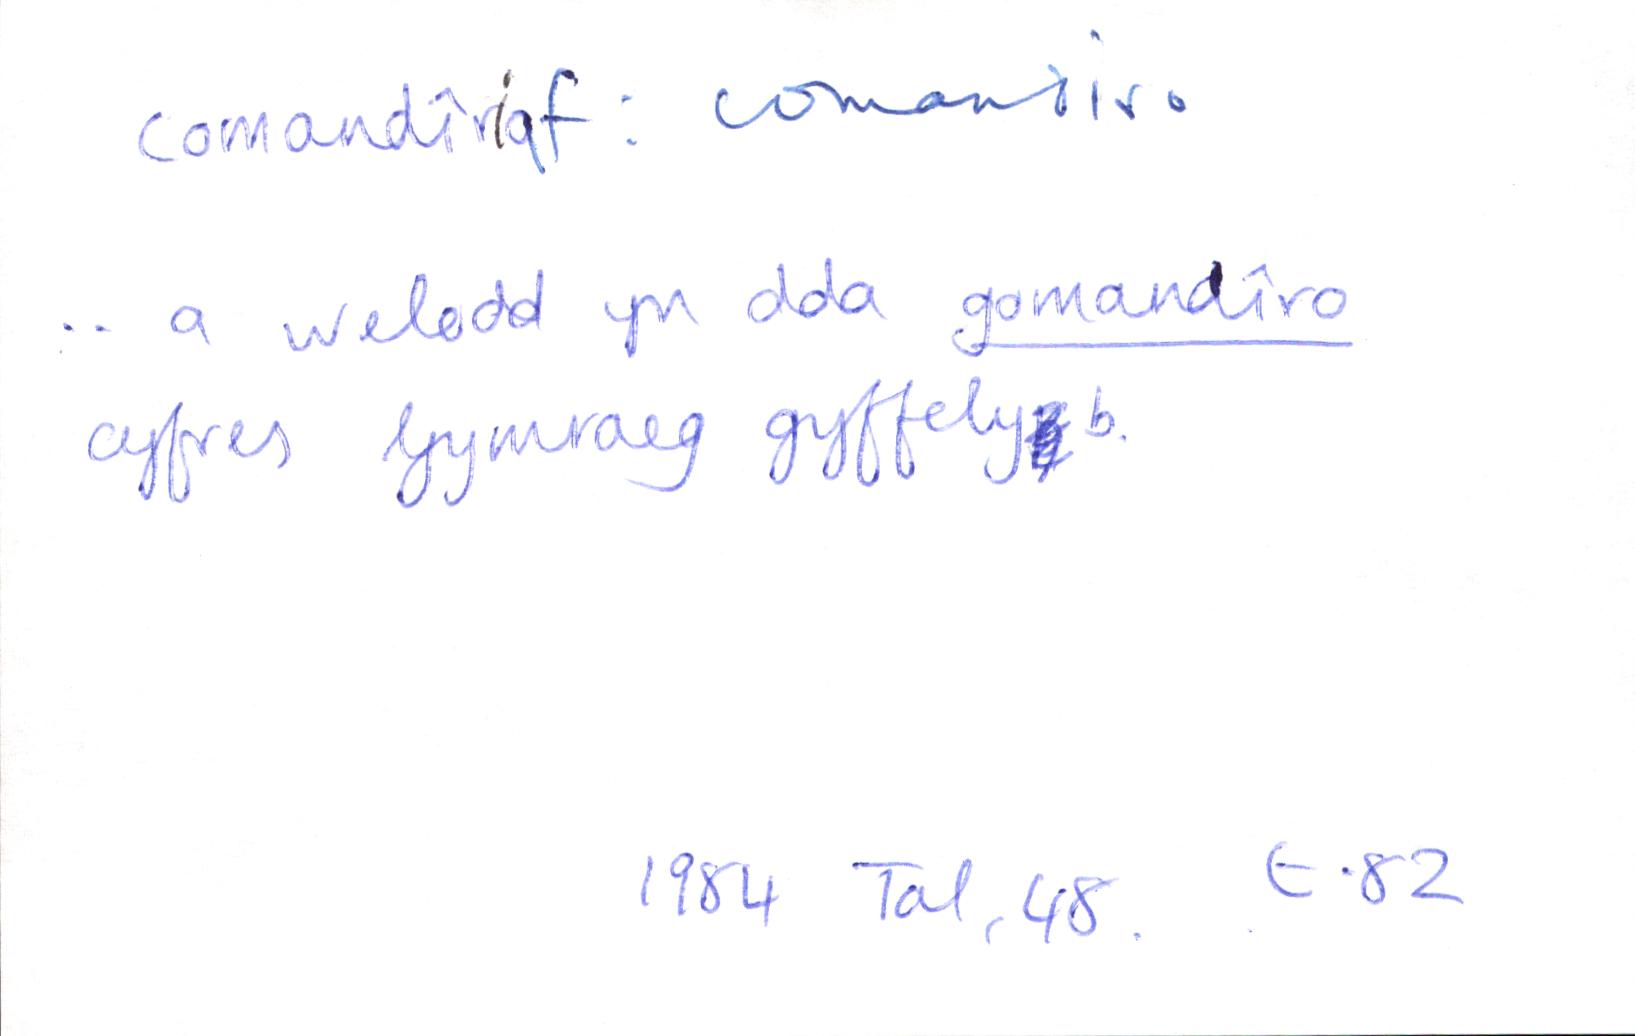 comandîriaf: comandiro
.. a welodd yn dda gomandîro
cyfres Gymraeg gyffelyb.
1984 Tal, 48. E.82